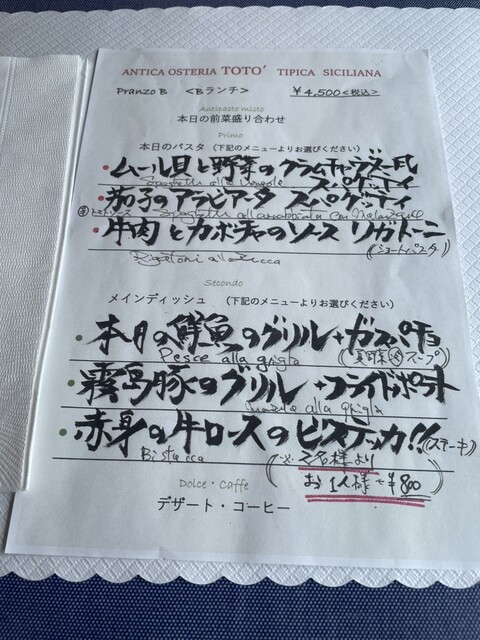 ANTICA OSTERIA TOTO' TIPICA SICILIANA
Pranzo B <Bランチ> ¥4,500<税込>
Antipasto misto
本日の前菜盛り合わせ
Primo
本日のパスタ (下記のメニューよりお選びください)
•ムール貝と野菜のクラムチャウダー風
スパゲッティ
Spaghetti alla Vongole
•茄子のアラビアータ スパゲッティ
トマトソース Spaghetti all'arrabbiata con Melanzane
•牛肉とカボチャのソース リガトーニ
(ショートパスタ)
Rigatoni alla Zucca
Secondo
メインディッシュ (下記のメニューよりお選びください)
•本日の鮮魚のグリル+ガスパチョ
Pesce alla griglia
スープ)
•霧島豚のグリル +フライドポテト
Maiale alla griglia
•赤身の牛ロースのビステッカ!!(ステーキ)
Bistecca
(※2名様より
お1人様+¥800)
Dolce・Caffe
デザート・コーヒー